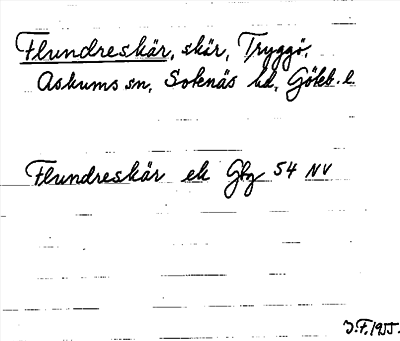 Flundreskär, skär, Tryggö,
Askums sn, Sotenäs hd, Göteb. l
Flundreskär ek Gbg 54 NV
J.F. 1955.